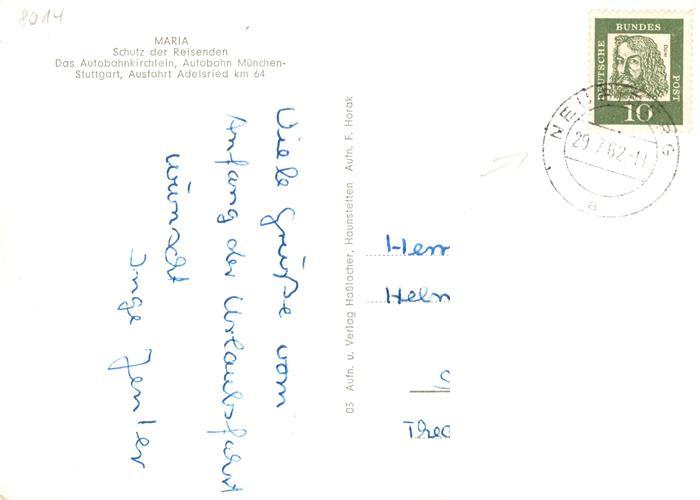 8014
MARIA
Schutz der Reisenden
Das Autobahnkirchlein, Autobahn München-
Stuttgart, Ausfahrt Adelsried km 64
Viele Grüße vom
Anfang der Urlaubsfahrt
wünscht
Inge
03 Aufn. u. Verlag Haßlacher, Haunstetten Aufn. F. Horak
DEUTSCHE
BUNDES
POST
Dürer
10
29.7.62-11
a
Herr
Helm
Theo